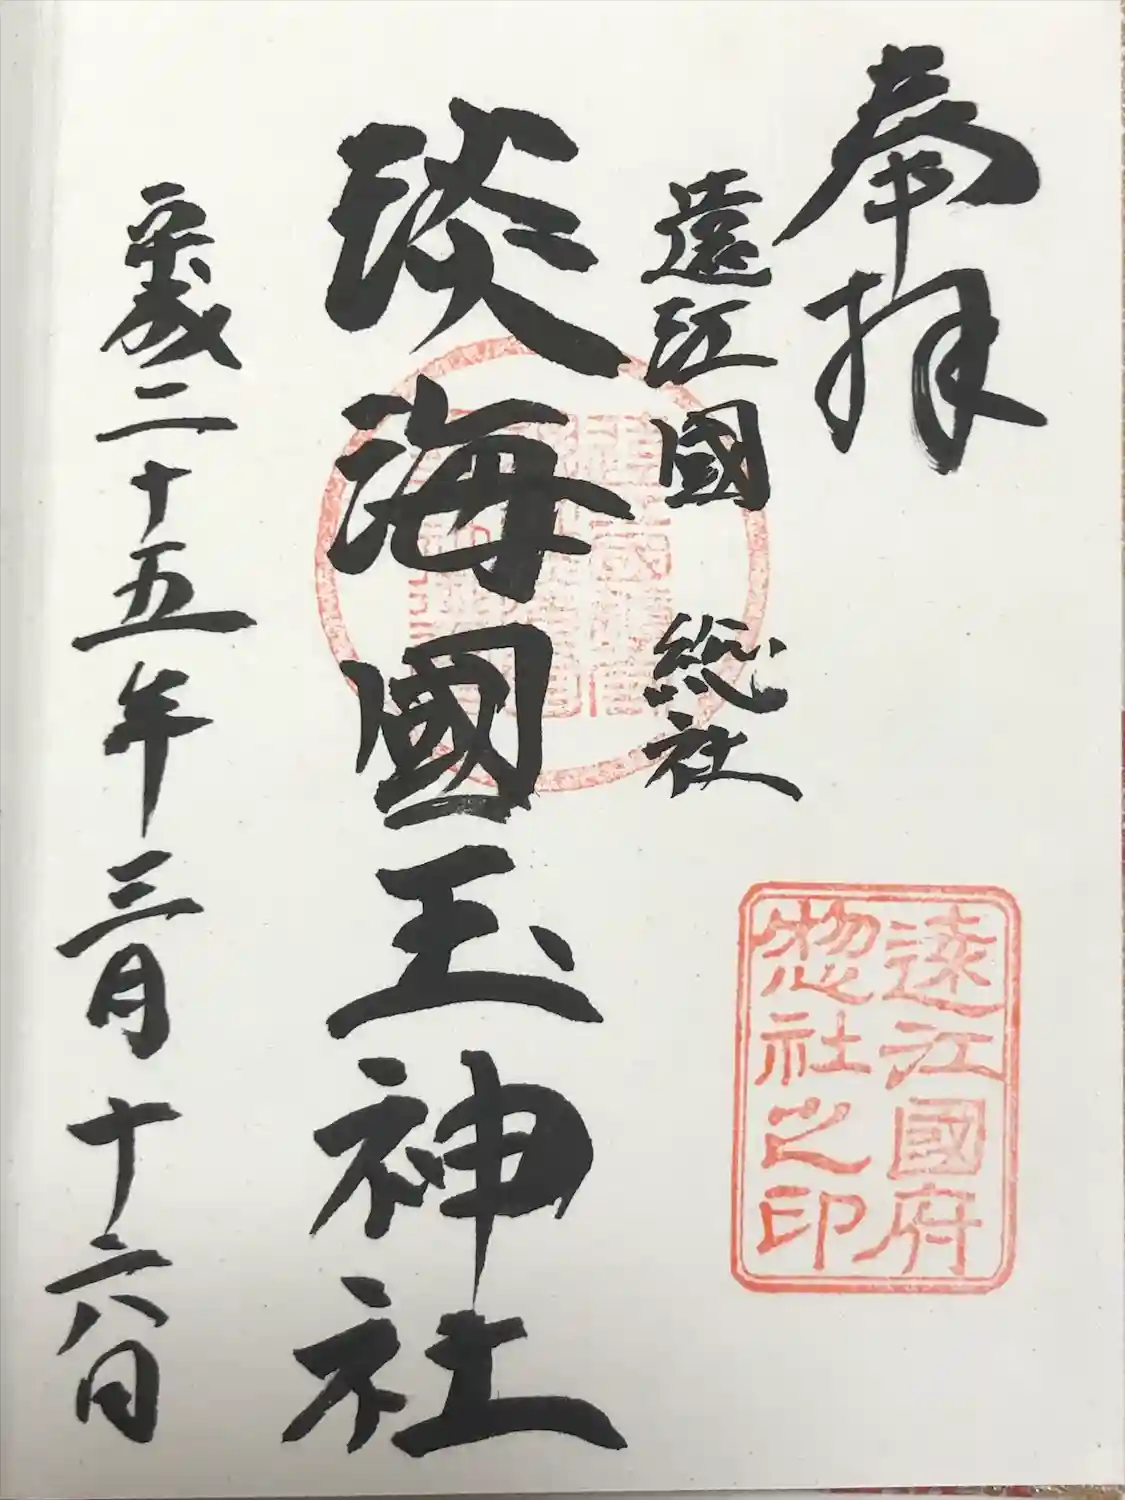 奉拝
遠江國 総社
淡海國玉神社
平成二十五年三月十六日
遠江國府
惣社之印